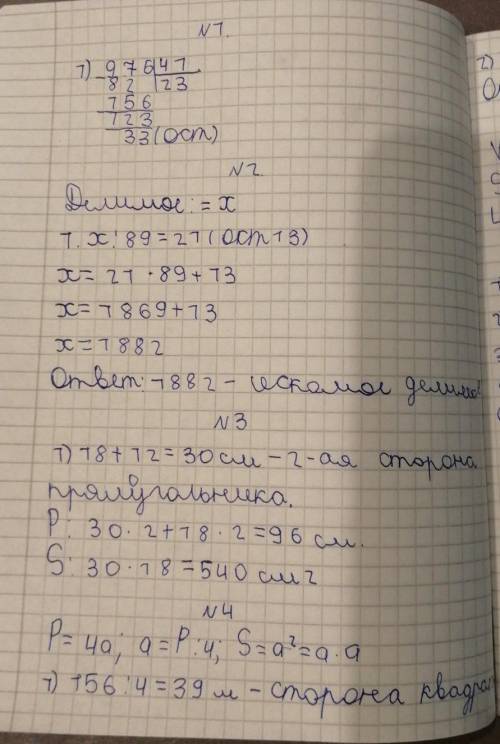 N1.
1) 976 | 41
82 | 23
156
123
33 (ост)
N2.
Делимое: = x
1. x : 89 = 21 (ост 13)
x = 21 · 89 + 13
x = 1869 + 13
x = 1882
Ответ: 1882 - искомое делимое
N3
1) 18 + 12 = 30 см - 2-ая сторона
прямугальника.
P: 30 · 2 + 18 · 2 = 96 см.
S: 30 · 18 = 540 см2
N4
P = 4a; a = P : 4; S = a² = a · a
1) 156 : 4 = 39 м - сторона
2)